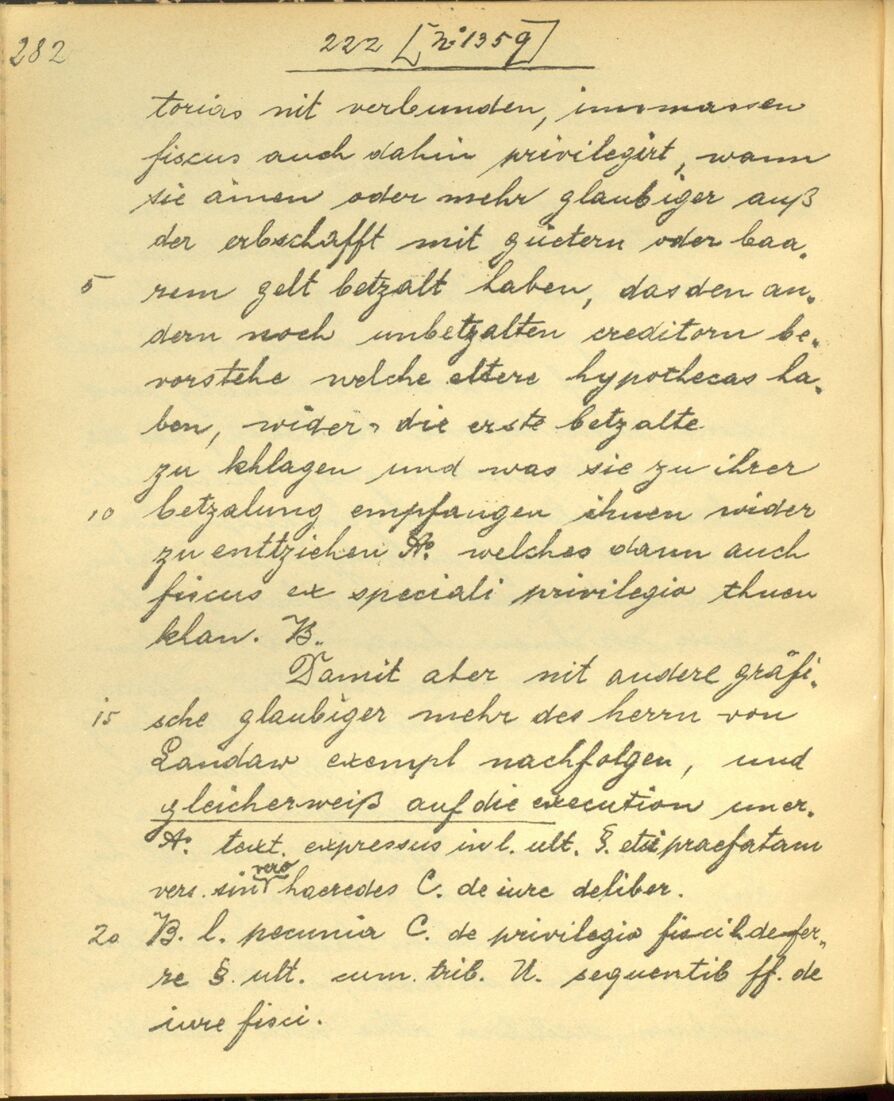 282
222 [No 1359]
torias nit verbunden, immassen
fiscus auch dahin privilegirt, wann
sie ainen oder mehr glaubiger auß
der erbschafft mit güetern oder baa„
5 rem gelt betzalt haben, das den an„
dern noch unbetzalten creditorn be„
vorstehe welche eltere hypothecas ha„
ben, wider die erste betzalte
zu khlagen und was sie zu ihrer
10 betzalung empfangen ihnen wider
zu enttziehen A. welches dann auch
fiscus ex speciali privilegio thuen
khan. B.
Damit aber nit andere gräfi„
15 sche glaubiger mehr des herrn von
Landaw exempl nachfolgen, und
gleicherweiß auf die execution uner„
A. text. expressus in l. ult. §. et si praefatam
vers. sin vero haeredes C. de iure deliber.
20 B. l. pecunia C. de privilegio fisci l. defer„
re §. ult. cum. trib. U. sequentib ff. de
iure fisci.